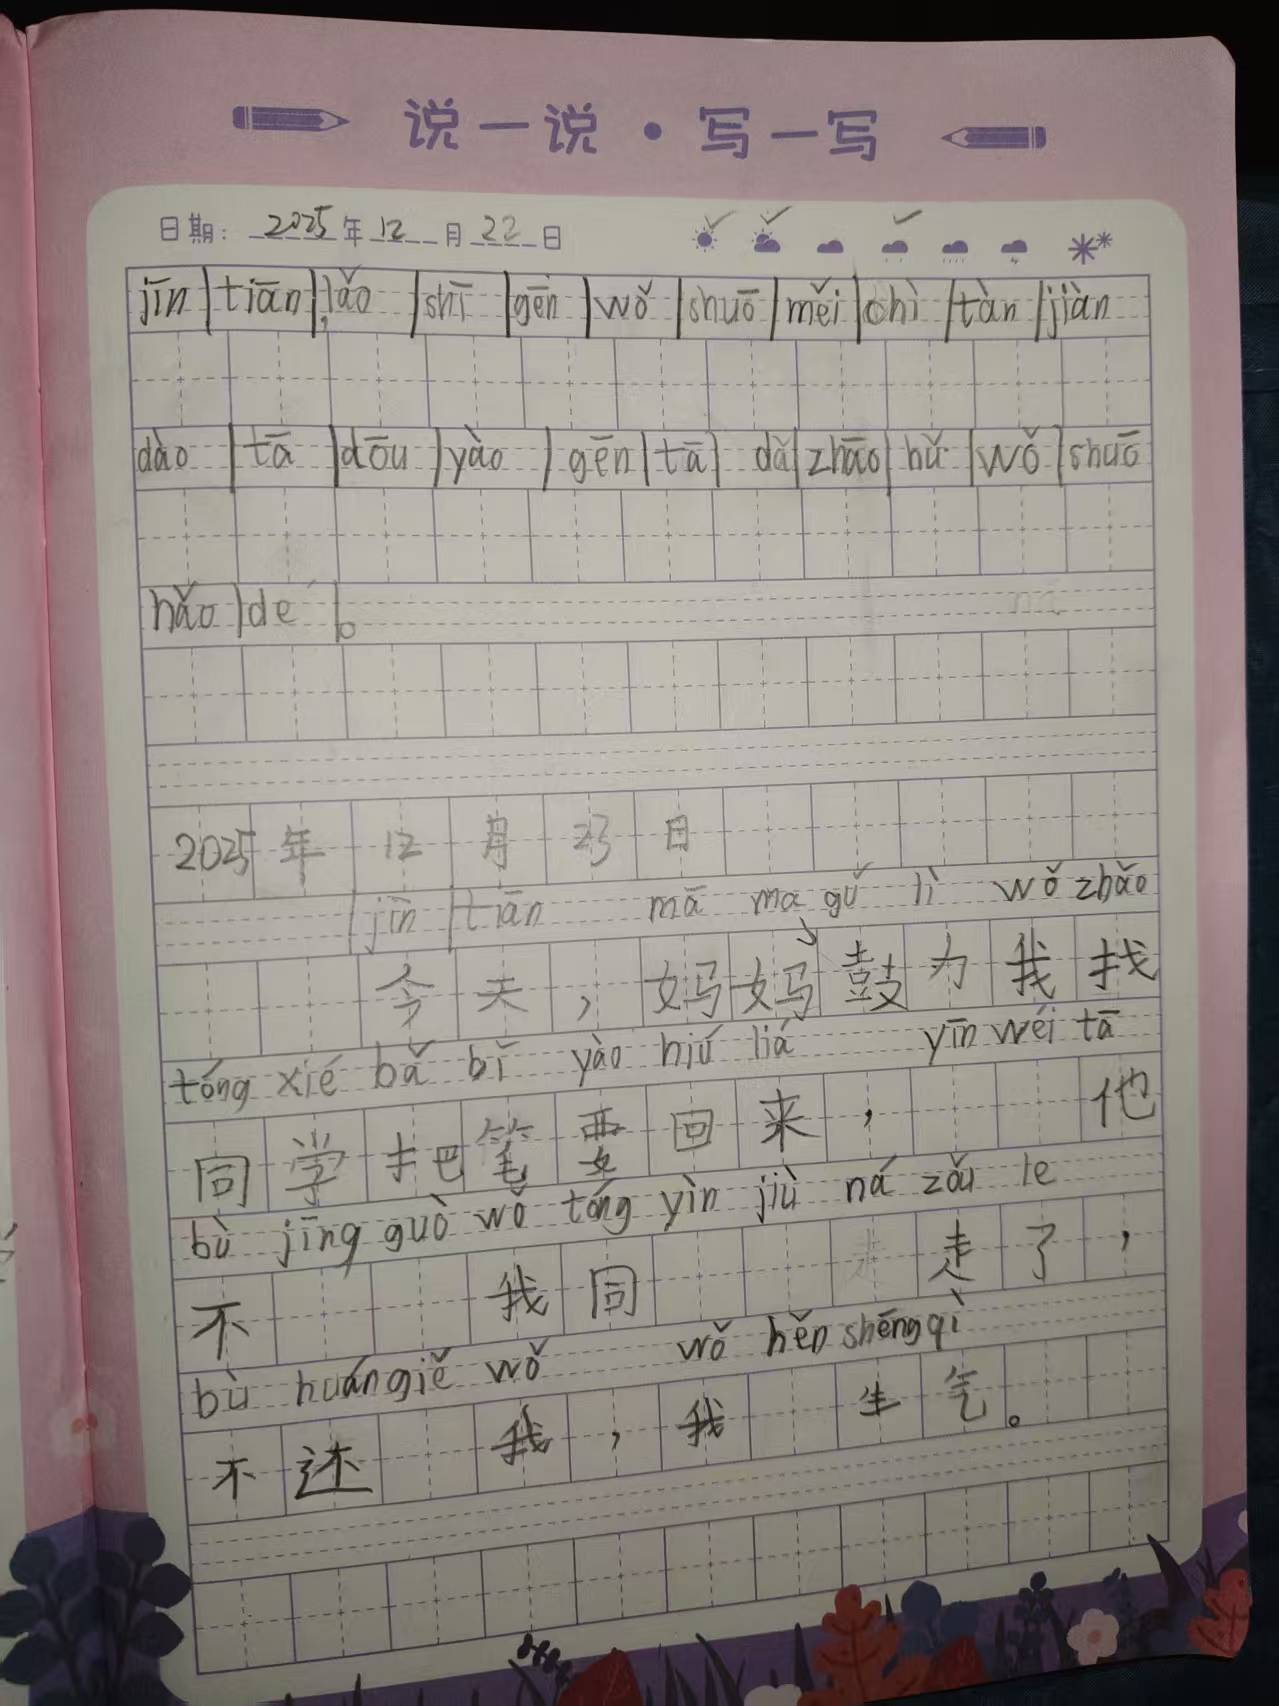 说一说·写一写
日期: 2025年12月22日
jīn tiān, lǎo shī gēn wǒ shuō měi chì tàn jiàn
dào tā dōu yào gēn tā dǎ zhāo hǔ wǒ shuō
hǎo de 。
2025年12月23日
jīn tiān mā ma gǔ lì wǒ zhǎo
今天，妈妈鼓力我找
tóng xié bǎ bǐ yào hiú liá yīn wéi tā
同学把笔要回来，他
bù jīng guò wǒ tóng yìn jiù ná zǒu le
不我同走了，
bù huángiě wǒ wǒ hěn shēngqì
不还我，我生气。